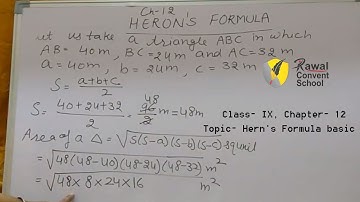 Ch-12
HERON'S FORMULA
Let us take a triangle ABC in which
AB = 40m, BC = 24m and AC = 32 m
a = 40m, b = 24m, c = 32 m
S = a+b+c / 2
S = 40+24+32 / 2 = 96 48 / 2 m = 48m
Area of a Δ = √s(s-a)(s-b)(s-c) squnit
= √48(48-40)(48-24)(48-32) m²
= √48×8×24×16 m²
Rawal
Convent
School
Class- IX, Chapter- 12
Topic- Hern's Formula basic